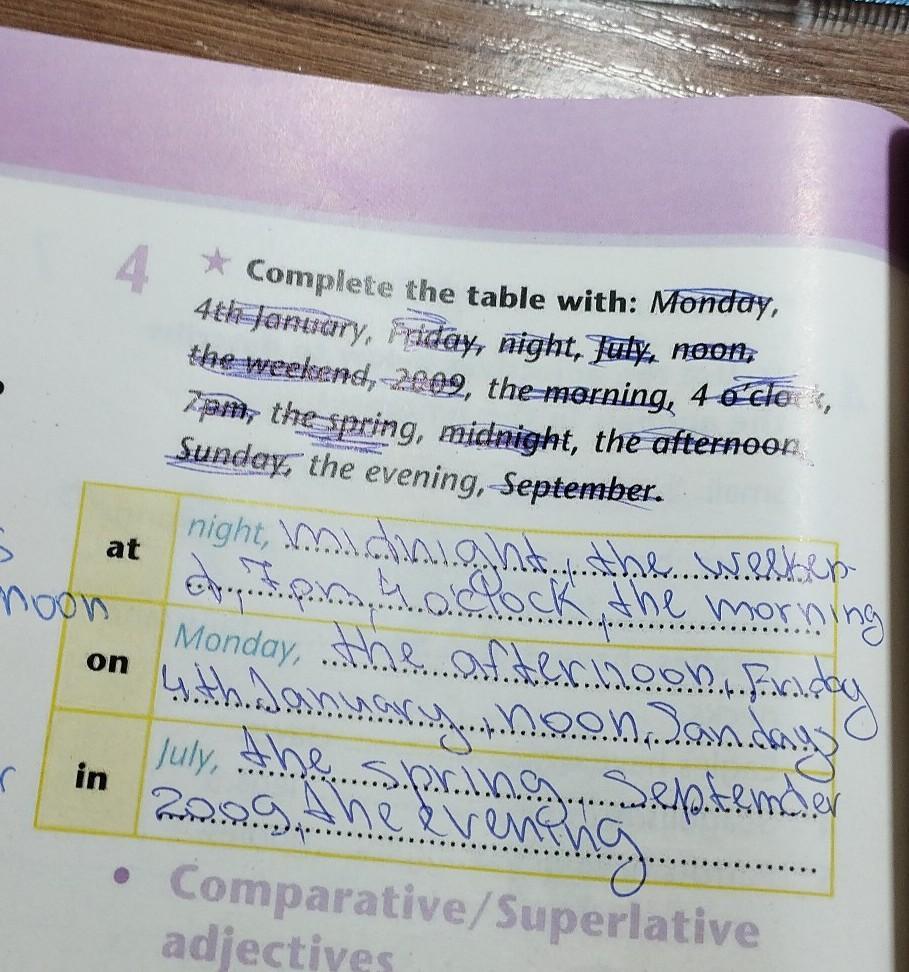 4 Complete the table with: Monday,
4th January, Friday, night, July, noon,
the weekend, 2009, the morning, 4 o'clock,
7pm, the spring, midnight, the afternoon
Sunday, the evening, September.
at
night, midnight, the weeken-
d, 7 pm, 4 o'clock, the morning
noon
on
Monday, the afternoon, Friday
4th January, noon, Sanday
in
July, the spring, September
2009, the evening
• Comparative/Superlative
adjectives